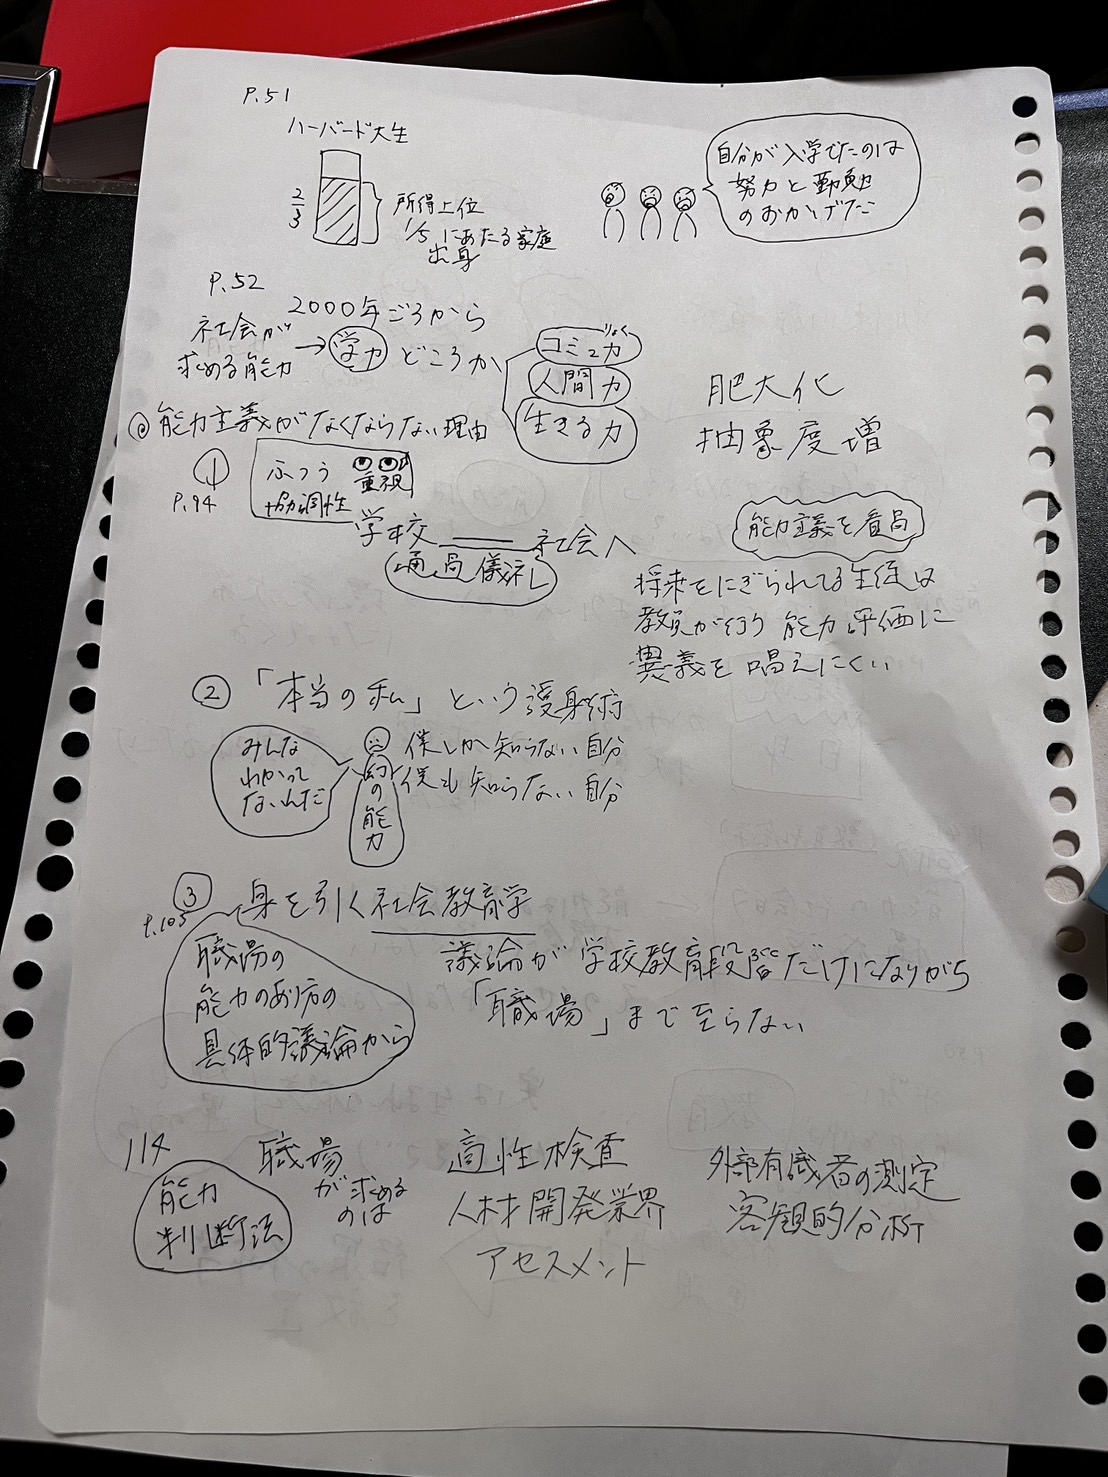 P.51
ハーバード大生
2/3
所得上位
1/5にあたる家庭
出身
自分が入学できたのは
努力と勤勉
のおかげだ
P.52
2000年ごろから
社会が
求める能力
→学力どころか
コミュ力
りょく
人間力
生きる力
肥大化
抽象度増
◎能力主義がなくならない理由
①
P.94
ふつう
協調性
重視
学校 社会へ
通過儀礼
能力主義を看過
将来をにぎられてる生徒は
教員が行う能力評価に
異義を唱えにくい
②「本当の私」という護身術
みんな
わかって
ないんだ
幻の能力
僕しか知らない自分
僕も知らない自分
③
P.105
身を引く社会教育学
職場の
能力のあり方の
具体的議論から
議論が学校教育段階だけになりがち
「職場」まで至らない
114
能力
判断法
職場
が求める
のは
適性検査
人材開発業界
アセスメント
外部有識者の測定
客観的分析